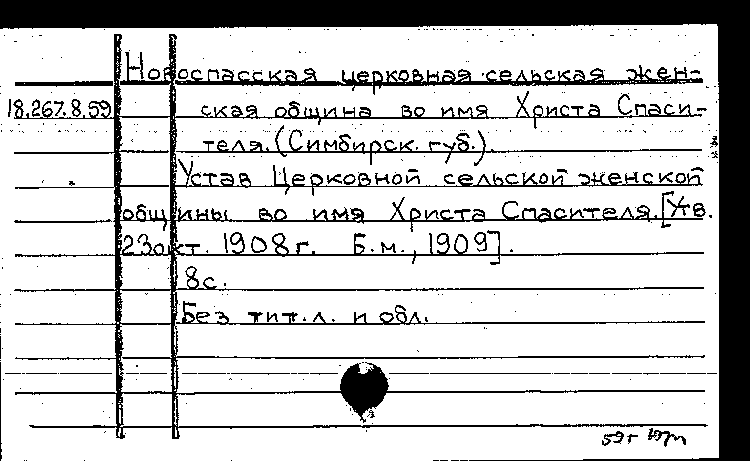 Новоспасская церковная сельская жен-
18.267.8.59 ская община во имя Христа Спаси-
теля. (Симбирск. губ.).
Устав Церковной сельской женской
общины во имя Христа Спасителя. [Утв.
23 окт. 1908 г. Б.м., 1909].
8с.
Без тит.л. и обл.